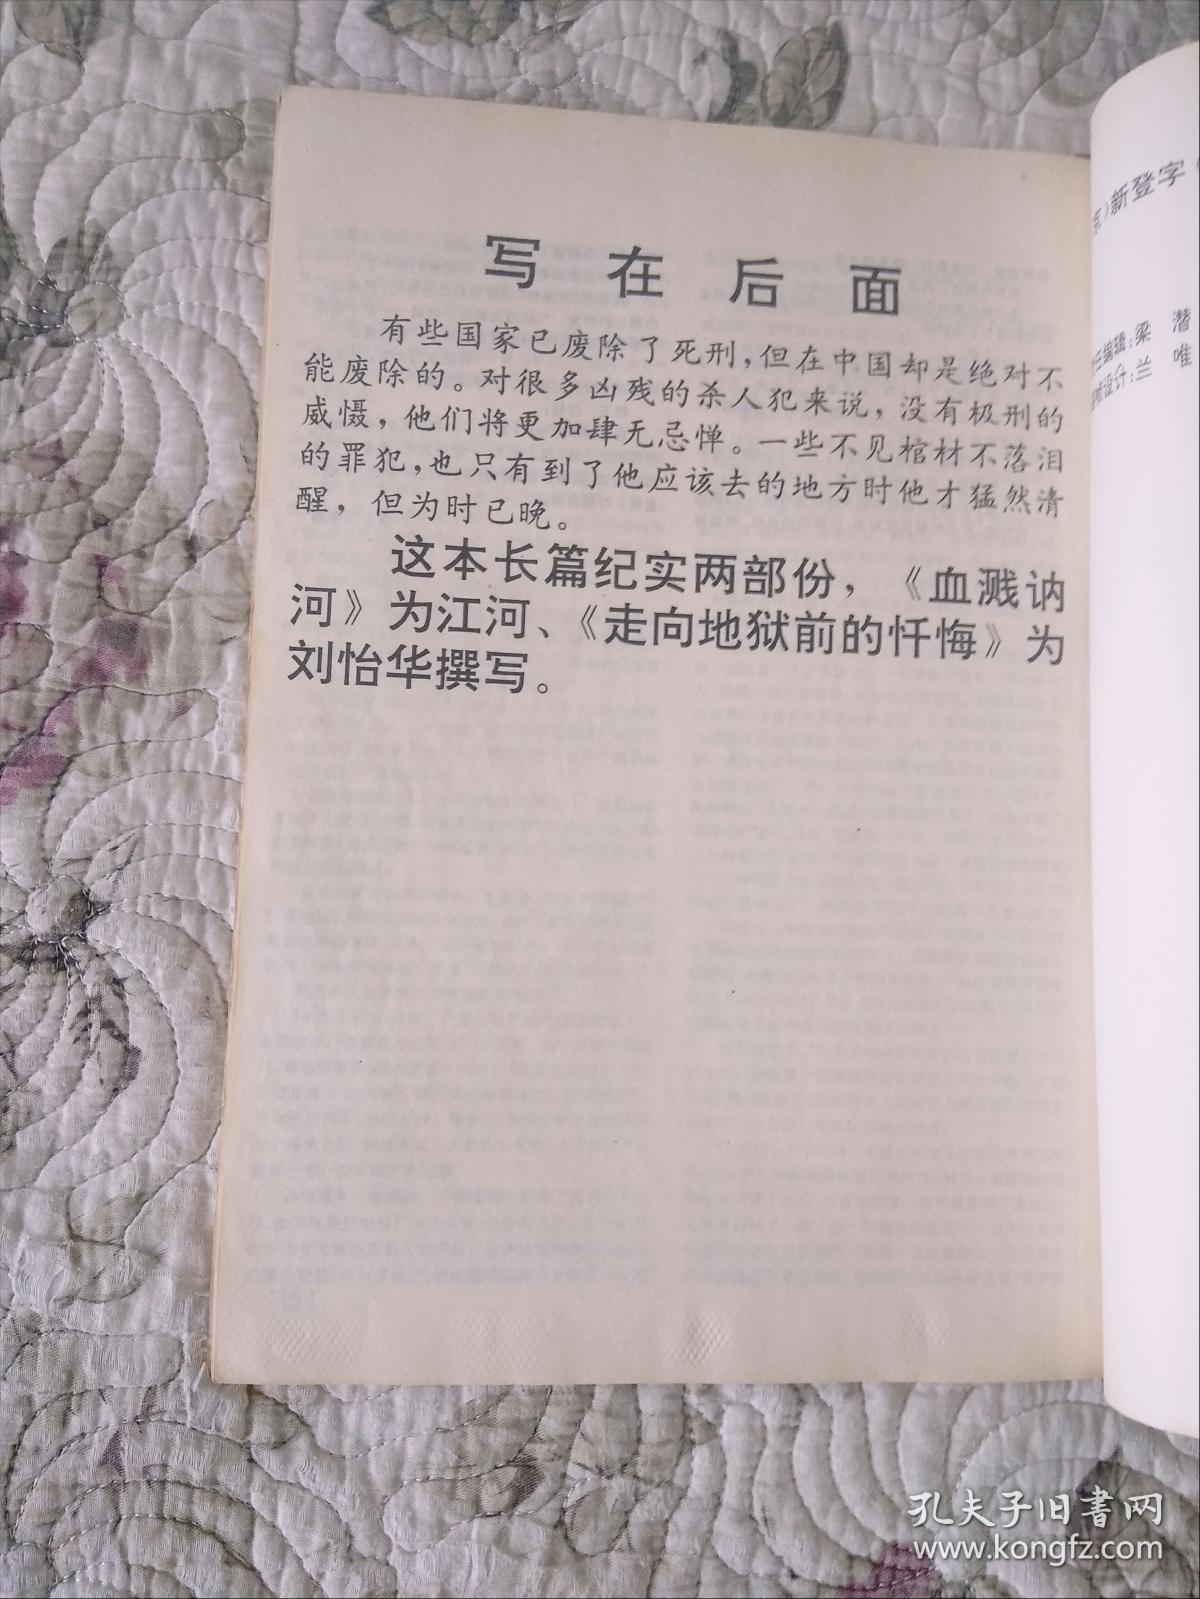 写在后面
有些国家已废除了死刑，但在中国却是绝对不
能废除的。对很多凶残的杀人犯来说，没有极刑的
威慑，他们将更加肆无忌惮。一些不见棺材不落泪
的罪犯，也只有到了他应该去的地方时他才猛然清
醒，但为时已晚。
这本长篇纪实两部份，《血溅讷
河》为江河、《走向地狱前的忏悔》为
刘怡华撰写。
京）新登字
编辑：梁 潜
设计：兰 唯
孔夫子旧书网
www.kongfz.com